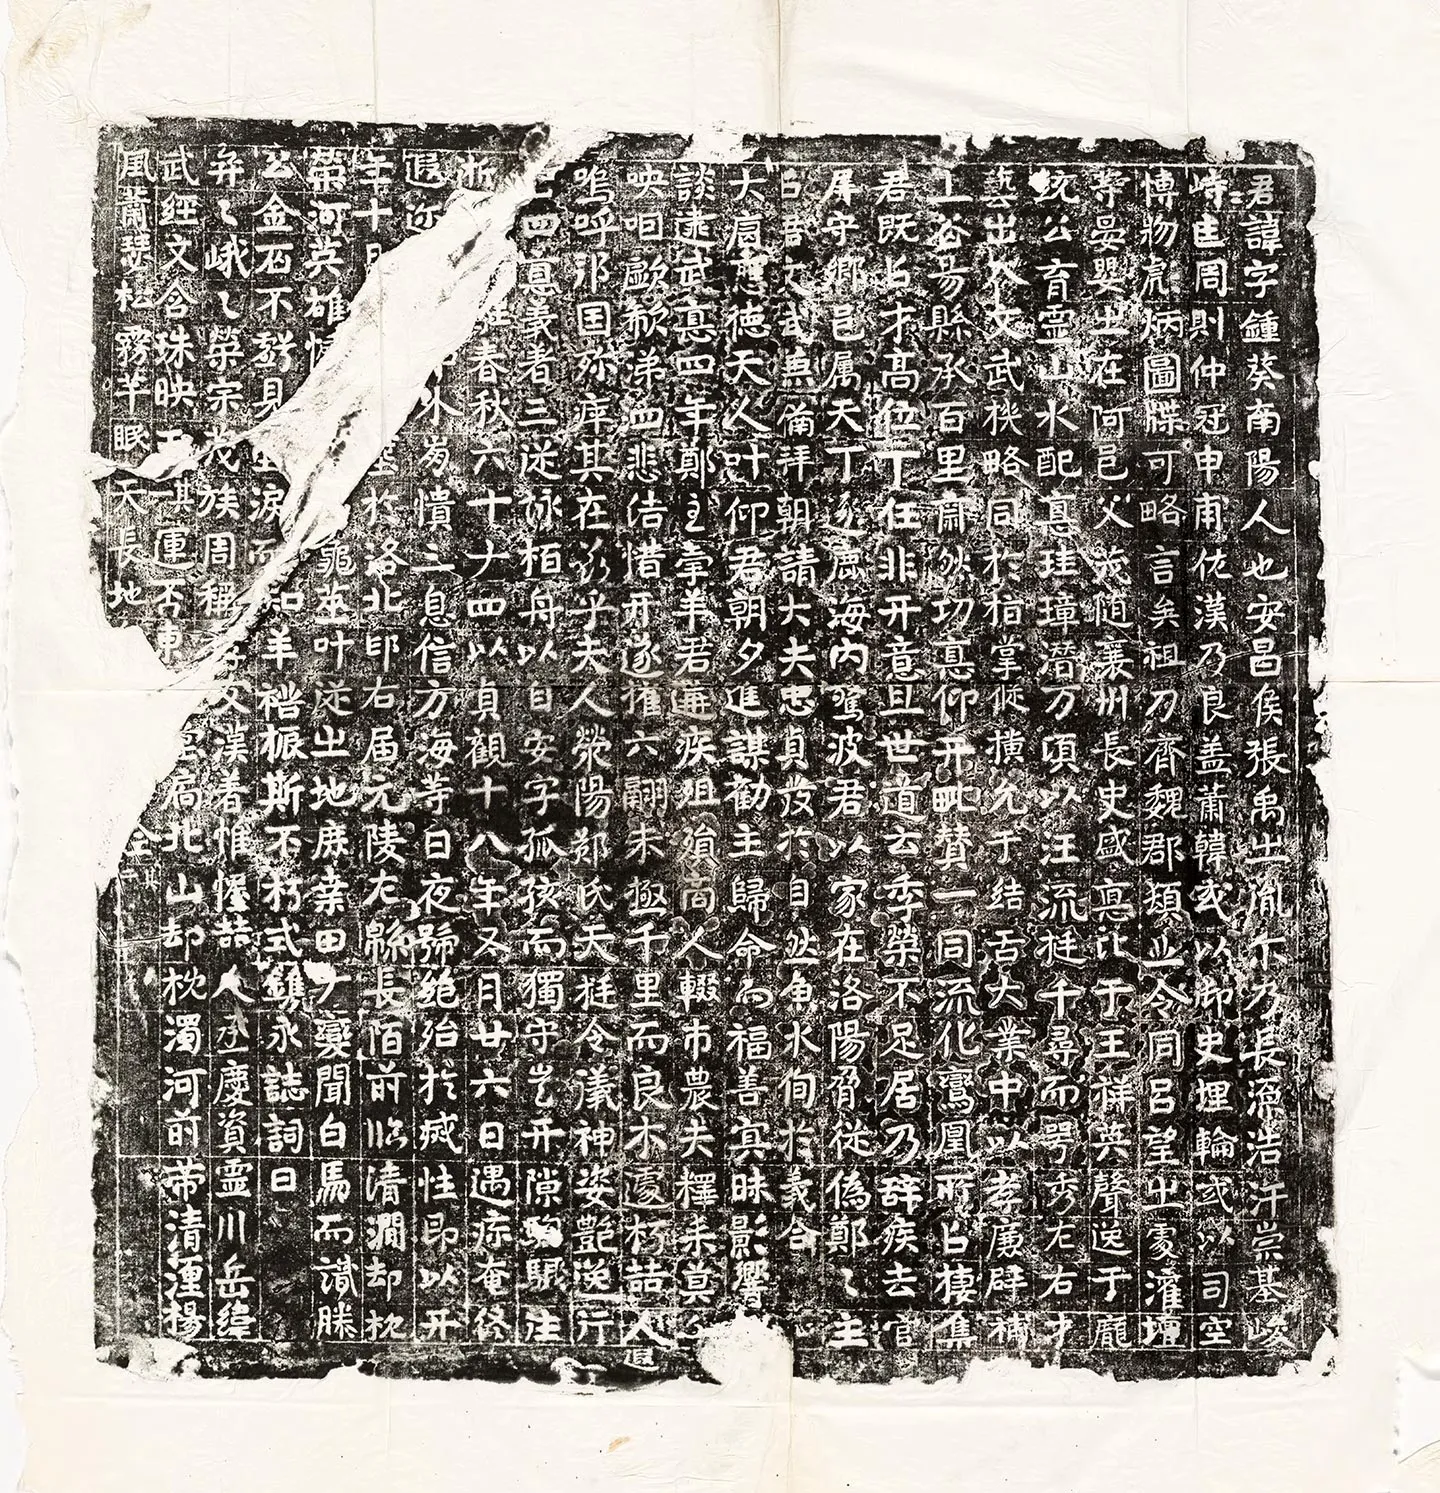 君諱字鍾葵南陽人也安昌侯張禹之胤尒乃長源浩汗崇基峻
峙在周則仲冠申甫佐漢乃良盖蕭韓或以御史埋輪或以司空
博物虎炳圖牒可略言矣祖刀齊魏郡頻丘令同呂望之處灌壇
等晏嬰之在阿邑父茂隨襄州長史盛悳比于王祥英聲送于龐
統公育靈山水配悳珪璋潛万頃以汪流挺千尋而萼秀左右才
藝出入文武機略同於指掌縱橫允于結舌大業中以孝廉辟補
上谷昜縣承百里肅然功悳仰开毗贊一同流化鸞凰所以棲集
君既以才高位下任非开意且世道云季榮不足居乃辞疾去官
屏守鄉邑属天下逐鹿海內驚波君以家在洛陽脅從偽鄭〻主
以君文武兼備拜朝請大夫忠貞發於自然魚水徇於義合
大唐應德天人叶仰君朝夕進謀勸主歸命而福善寘昧影響
談逮武悳四年鄭主牽羊君遘疾俎殞商人輟市農夫釋耒莫
咉咱歔欷涕四悲結惜开遂摧六翮未極千里而良木遽朽喆人
嗚呼邦国殄瘁其在茲乎夫人滎陽鄭氏天挺令儀神姿艷逸行
四悳義者三從詠栢舟以自安字孤孩而獨守豈开隙駒駟注
逝 春秋六十才四以貞觀十八年又月廿六日遇疾奄終
遐迩 水芳憤二息信方海等日夜號絕殆於烕性即以开
年十月 塋於洛北邙右届元陵左緜長陌前臨清澗却枕
榮河英雄 龜筮叶從之地庶桒田一變聞白馬而讃滕
公金石不 見 淚而知羊祜振斯不朽式鐫永誌詞曰
弈〻峨〻榮宗茂族周稱 父漢著惟幄喆人丕慶資靈川岳緯
武經文含珠映玉其一運否東 扃北山却枕濁河前帶清湹楊
風蕭瑟松霧芊眠天長地